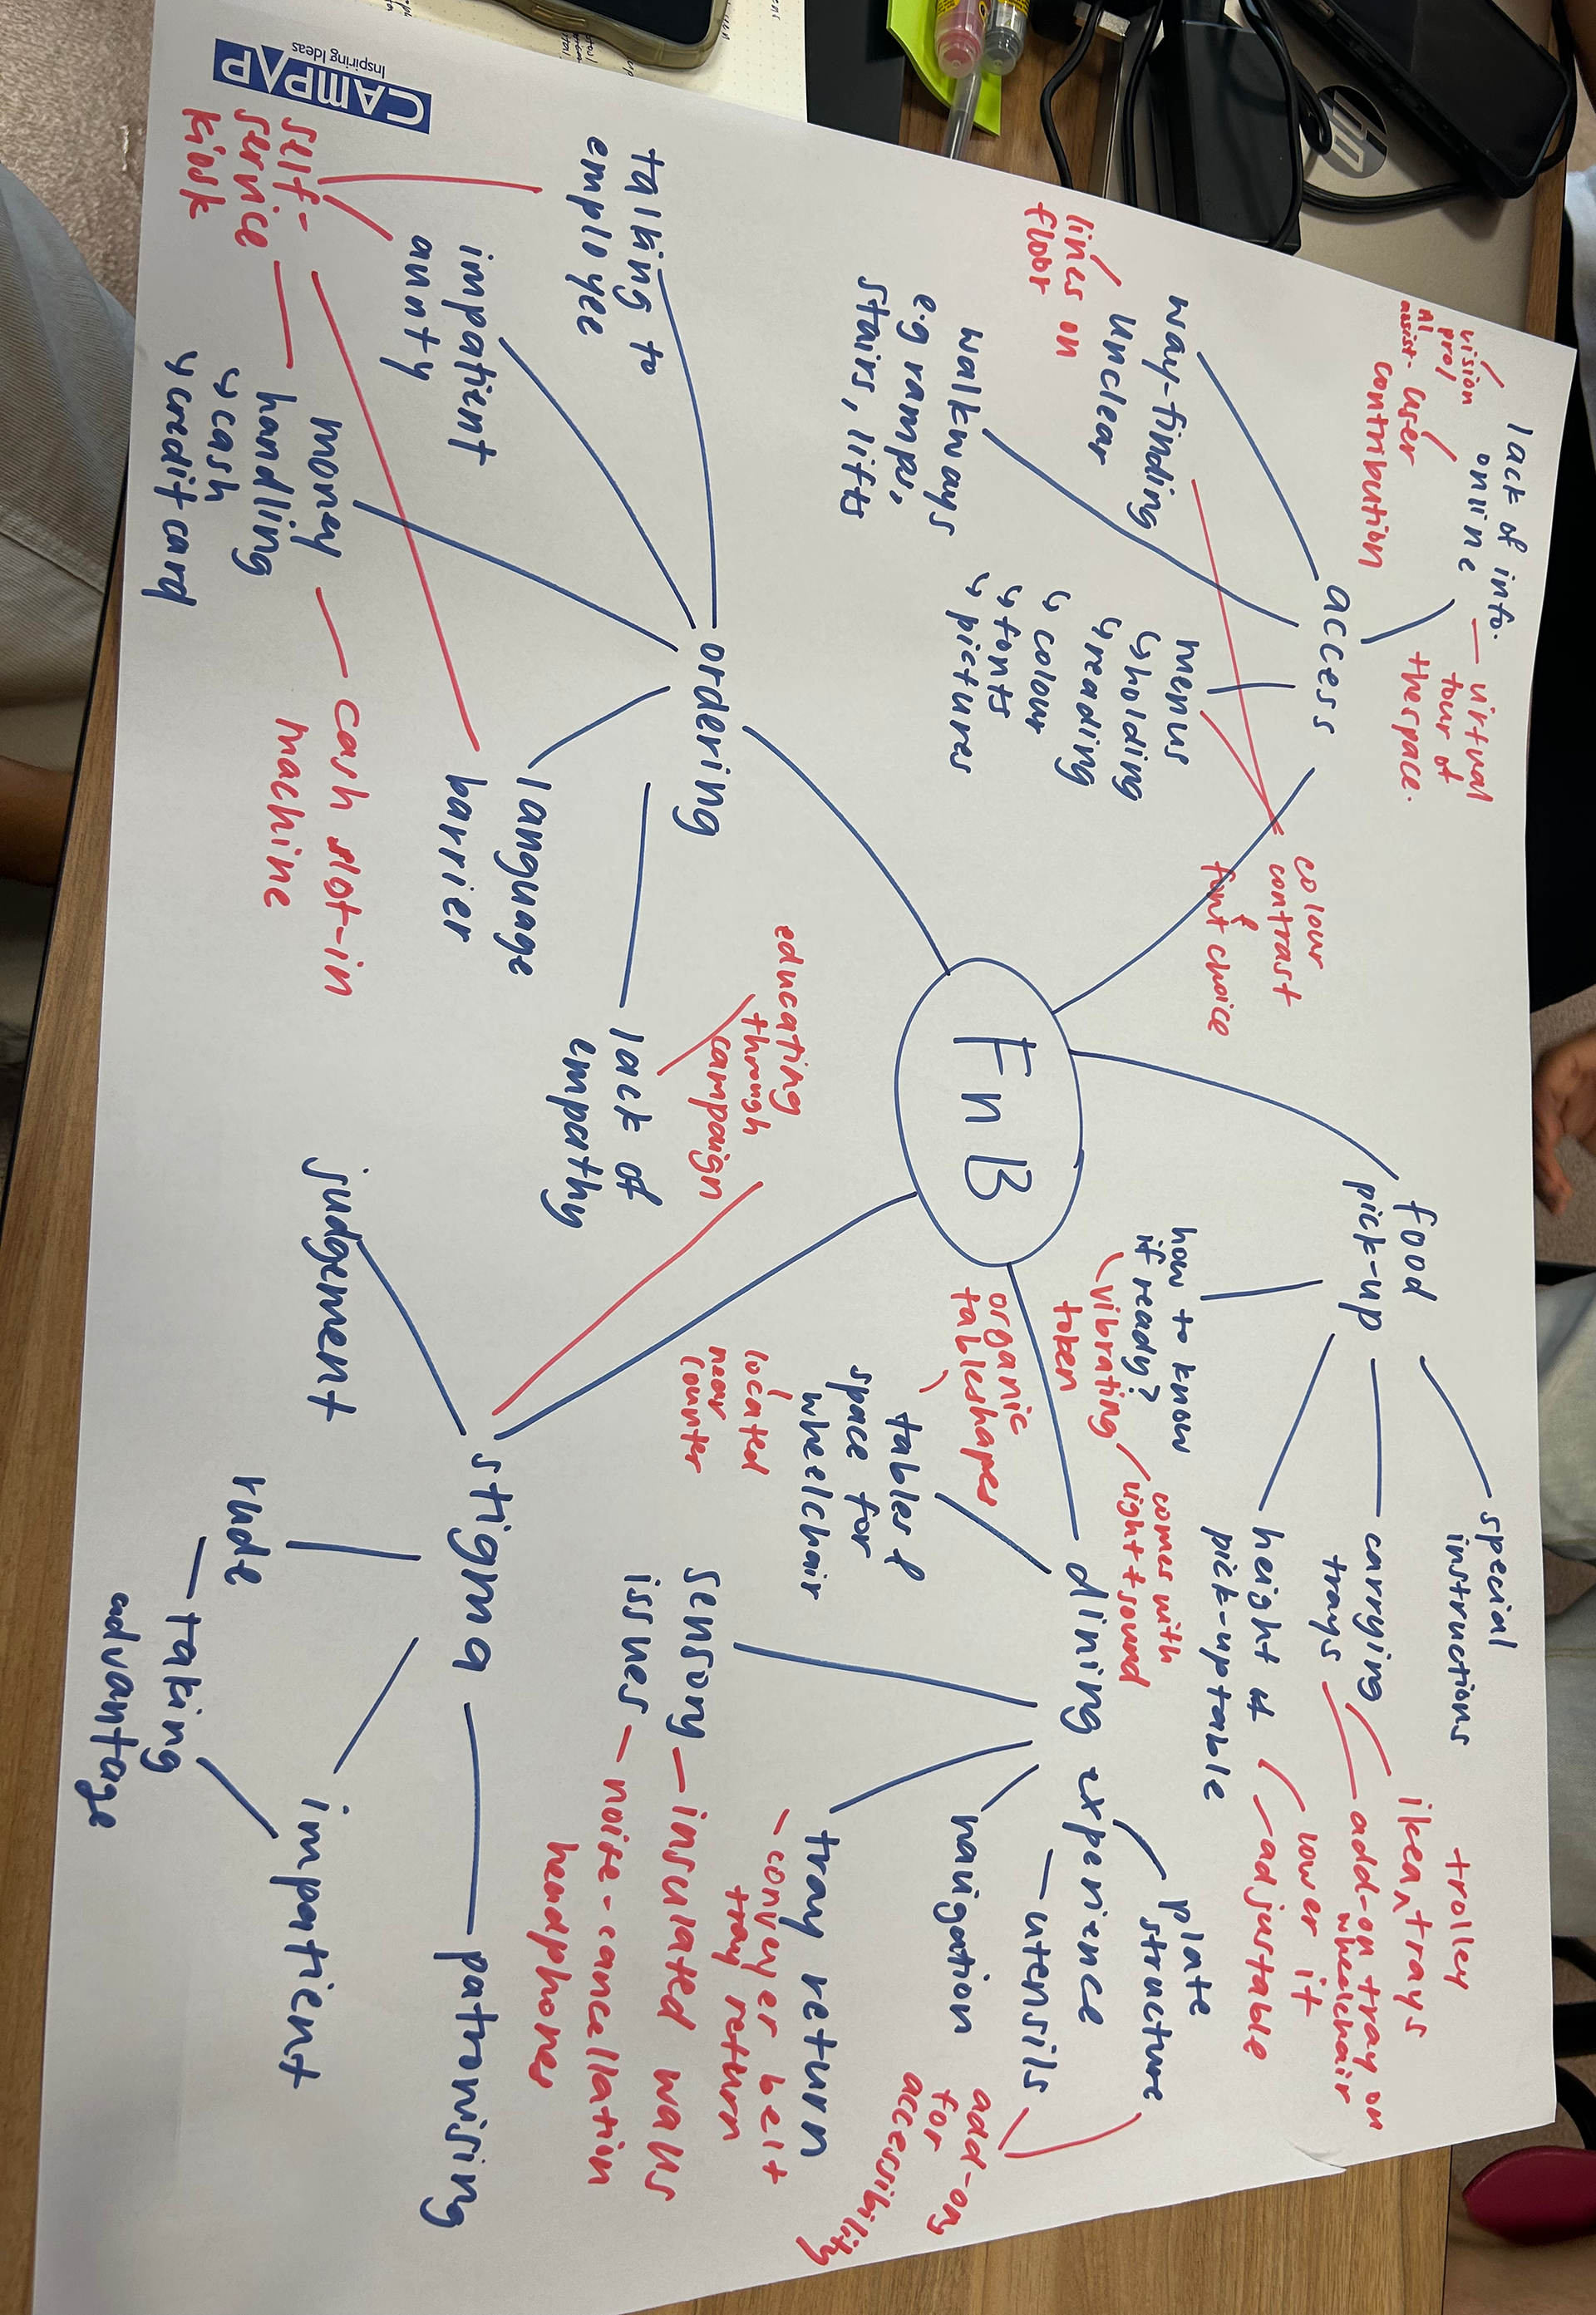 CAMPAP
Inspiring Ideas
FnB
access
lack of info.
online
virtual
tour of
the space.
user
contribution
vision
pro/
AI
assist.
way-finding
unclear
lines on
floor
walkways
e.g ramps,
stairs, lifts
menus
↳ holding
↳ reading
↳ colour
↳ fonts
↳ pictures
colour
contrast
&
font choice
food
pick-up
special
instructions
carrying
trays
trolley
ikea trays
add-on tray on
wheelchair
height of
pick-up table
lower it
adjustable
how to know
if ready?
vibrating
token
comes with
light + sound
dining experience
plate
structure
utensils
add-ons
for
accessibility
navigation
tray return
- conveyer belt
tray return
sensory
issues
insulated walls
noise-cancellation
headphones
tables &
space for
wheelchair
organic
table shapes
located
near
counter
stigma
judgement
rude
taking
advantage
impatient
patronising
educating
through
campaign
ordering
talking to
employee
impatient
aunty
money
handling
↳ cash
↳ credit card
cash slot-in
machine
self-
service
kiosk
language
barrier
lack of
empathy
hp